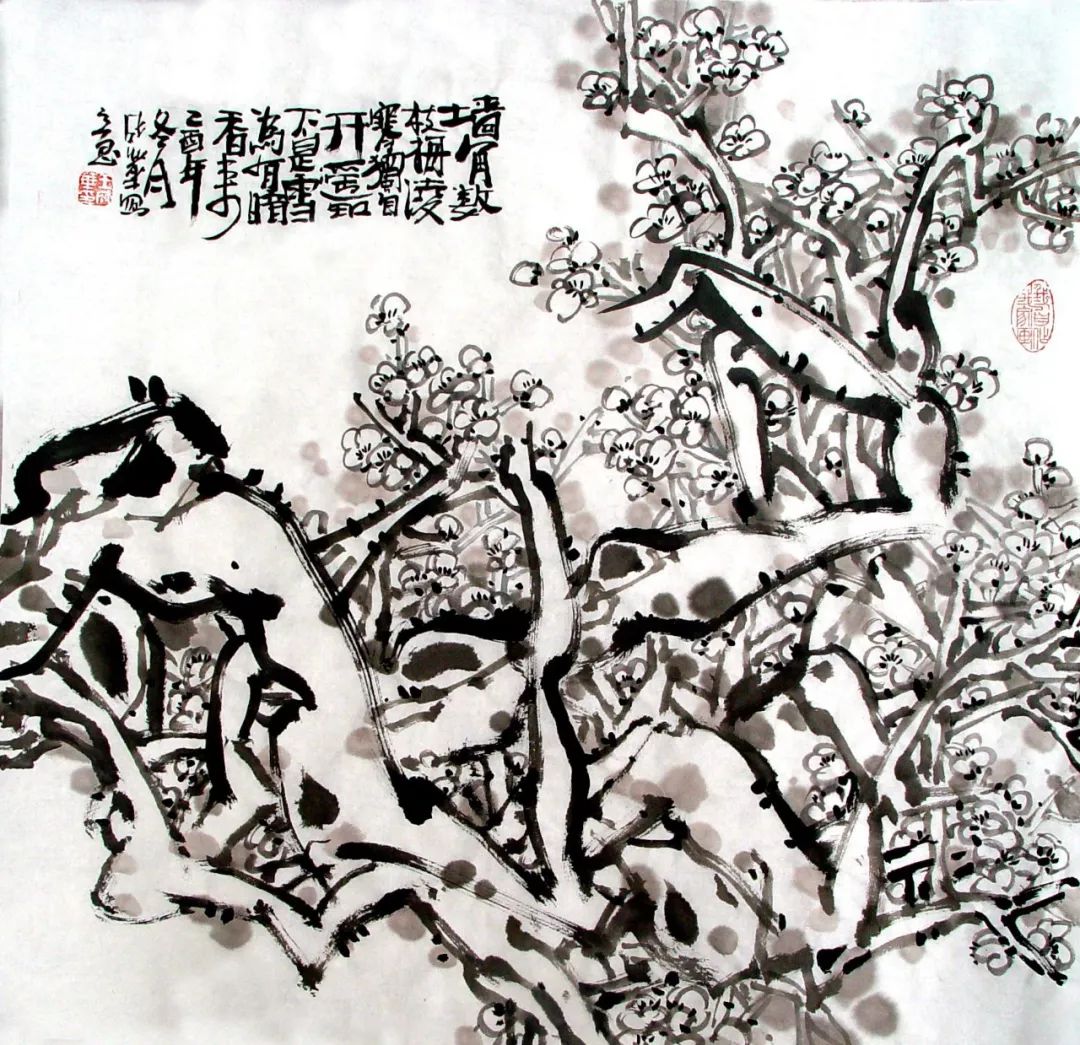 墙角数
枝梅凌
寒獨自
开遥知
不是雪
為有暗
香来
乙酉年
冬月